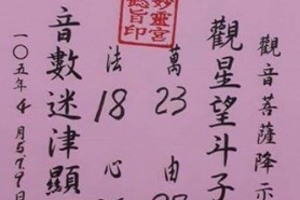 觀音菩薩降示
觀星望斗子
萬 23 由
妙靈宮
旨印
法 18 心
音數迷津顯
一〇五年4月 9日